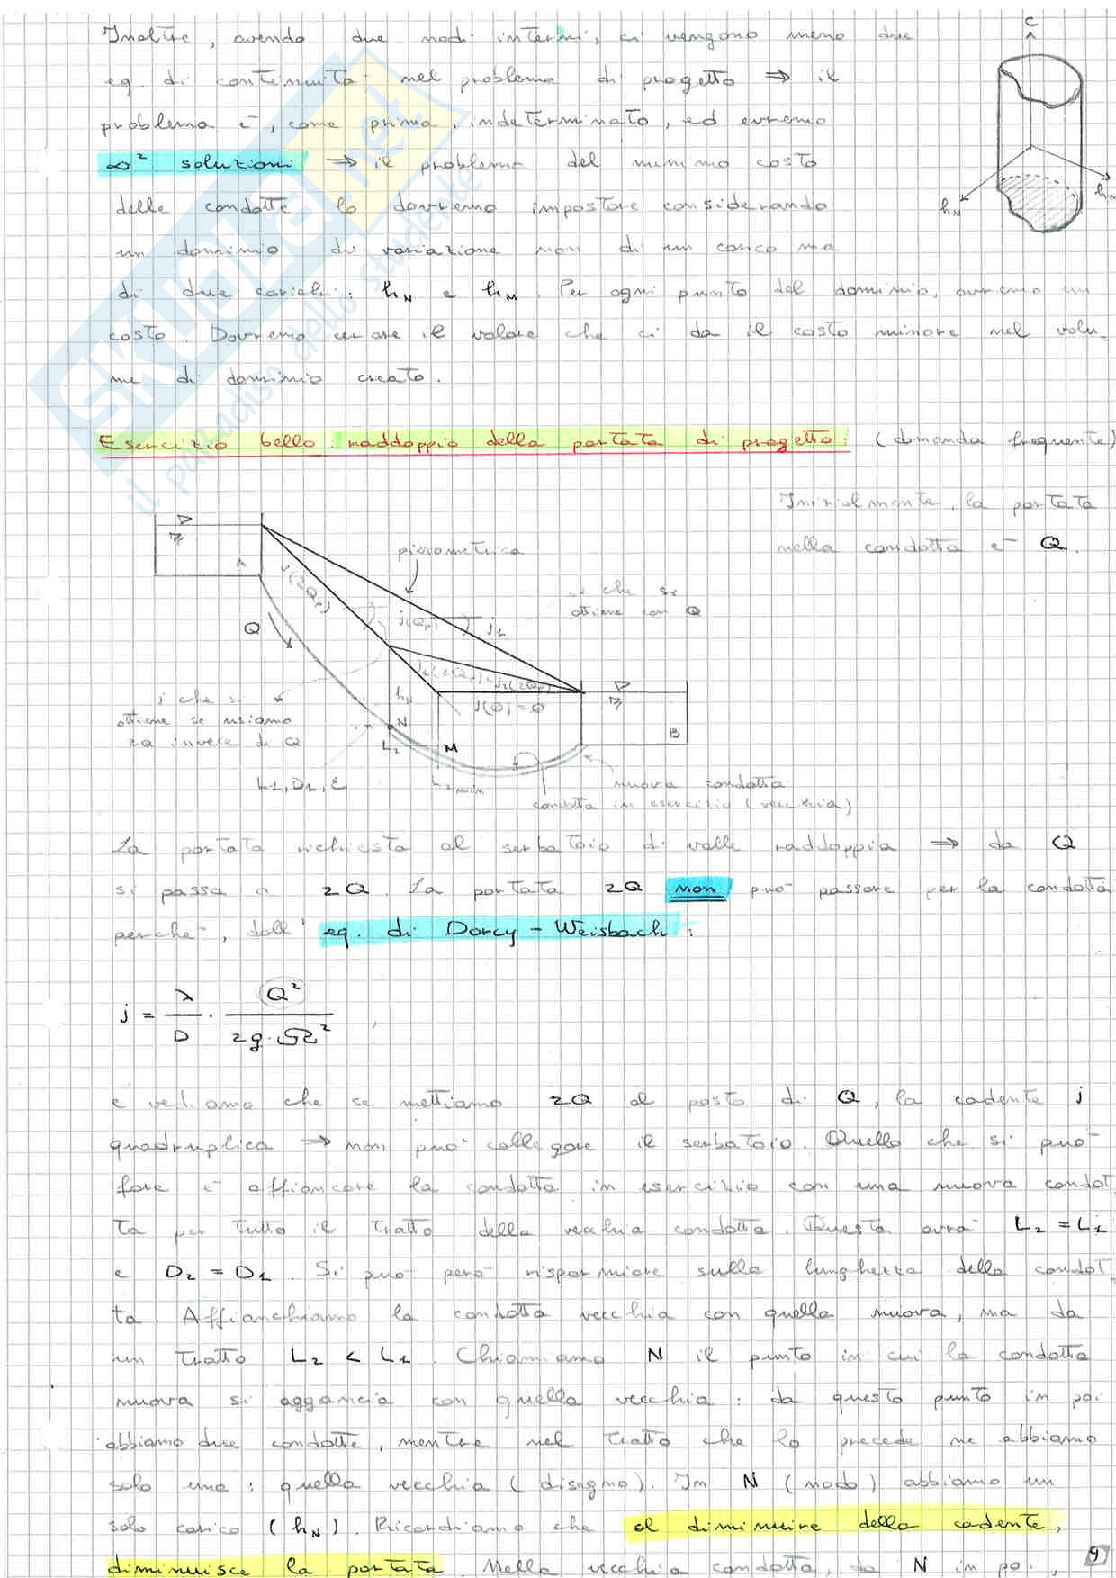 Inoltre, avendo due nodi interni, ci vengono meno due
eq. di continuità nel problema di progetto ⇒ il
problema è, come prima, indeterminato, ed avremo
∞² soluzioni ⇒ il problema del minimo costo
delle condotte lo dovremo impostare considerando
un dominio di variazione non di un carico ma
di due carichi: hN e hM. Per ogni punto del dominio, avremo un
costo. Dovremo cercare il valore che ci dà il costo minore nel volu-
me di dominio creato.
C
hN
hM
Esercizio bello: raddoppio della portata di progetto: (domanda frequente)
Inizialmente, la portata
nella condotta è Q.
piezometrica
A
j(2Qp)
j che si
ottiene con Q
j(Qp)
Q
j che si
ottiene se usiamo
2Q invece di Q
hN
N
L2
M
B
L1, D1, ε
L2min
nuova condotta
condotta in esercizio (vecchia)
La portata richiesta al serbatoio di valle raddoppia ⇒ da Q
si passa a 2Q. La portata 2Q non può passare per la condotta
perché, dall' eq. di Darcy-Weisbach:
j = λ/D · Q²/2g·Ω²
e vediamo che se mettiamo 2Q al posto di Q, la cadente j
quadruplica ⇒ non può collegare il serbatoio. Quello che si può
fare è affiancare la condotta in esercizio con una nuova condot
ta per tutto il tratto della vecchia condotta. Questa avrà L2 = L1
e D2 = D1 Si può però risparmiare sulla lunghezza della condot
ta Affianchiamo la condotta vecchia con quella nuova, ma da
un tratto L2 < L1. Chiamiamo N il punto in cui la condotta
nuova si aggancia con quella vecchia: da questo punto in poi
abbiamo due condotte, mentre nel tratto che lo precede ne abbiamo
solo una: quella vecchia (disegno). In N (nodo) abbiamo un
solo carico (hN). Ricordiamo che al diminuire della cadente,
diminuisce la portata. Nella vecchia condotta, da N in poi,
9
SKUOLA.net
il paradiso dello studente